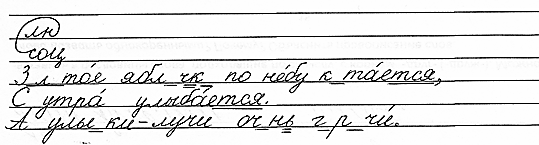 лю
соц
З_л_то́е ябл_чк_ по не́бу к_та́ется,
С утра́ улыба́ется.
А улы_ки-лучи оч_нь г_р_чи́.